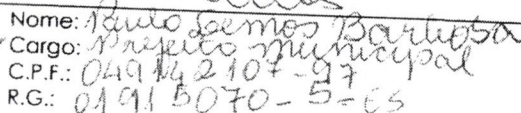 Nome: Paulo Lemos Barbosa
Cargo: Prefeito Municipal
C.P.F.: 049142107-97
R.G.: 01915070-5-ES